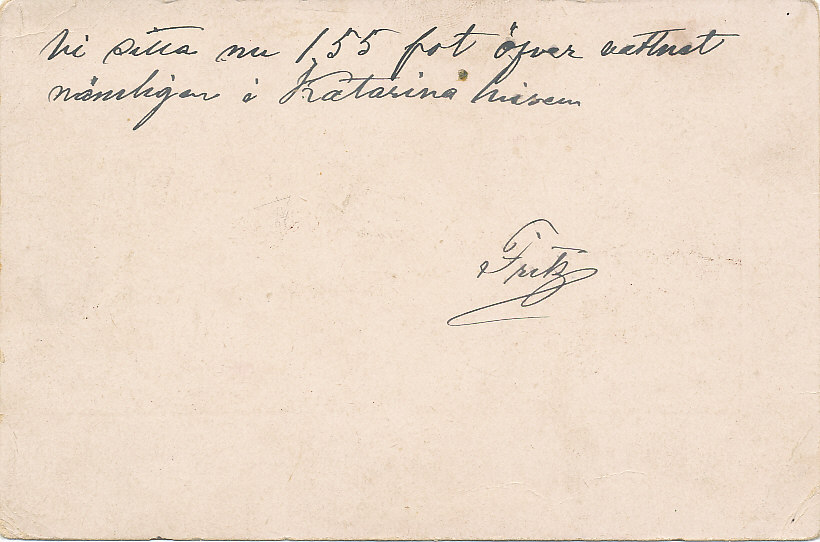 Vi sitta nu 155 fot öfver vattnet
nämligen i Katarina hissen
Fritz